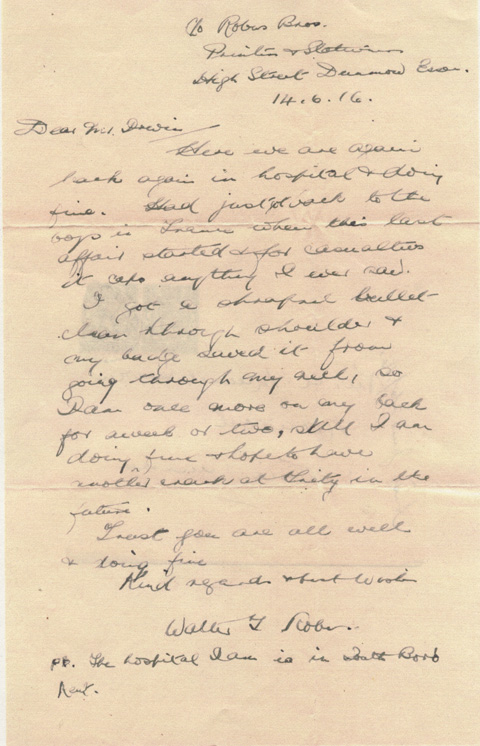 c/o Robus Bros.
Printers & Stationers
High Street Dunmow Essex.
14.6.16.
Dear Mr. Irwin
Here we are again
back again in hospital & doing
fine. Had just got back to the
boys in France when this last
affair started & for casualties
it caps anything I ever saw.
I got a shrapnel bullet
clean through shoulder &
my badge saved it from
going through my neck, so
I am once more on my back
for a week or two, still I am
doing fine & hope to have
another crack at Fritz in the
future.
Trust you are all well
& doing fine
Kind regards & best Wishes
Walter F Robus.
ps. The hospital I am is in
Kent.